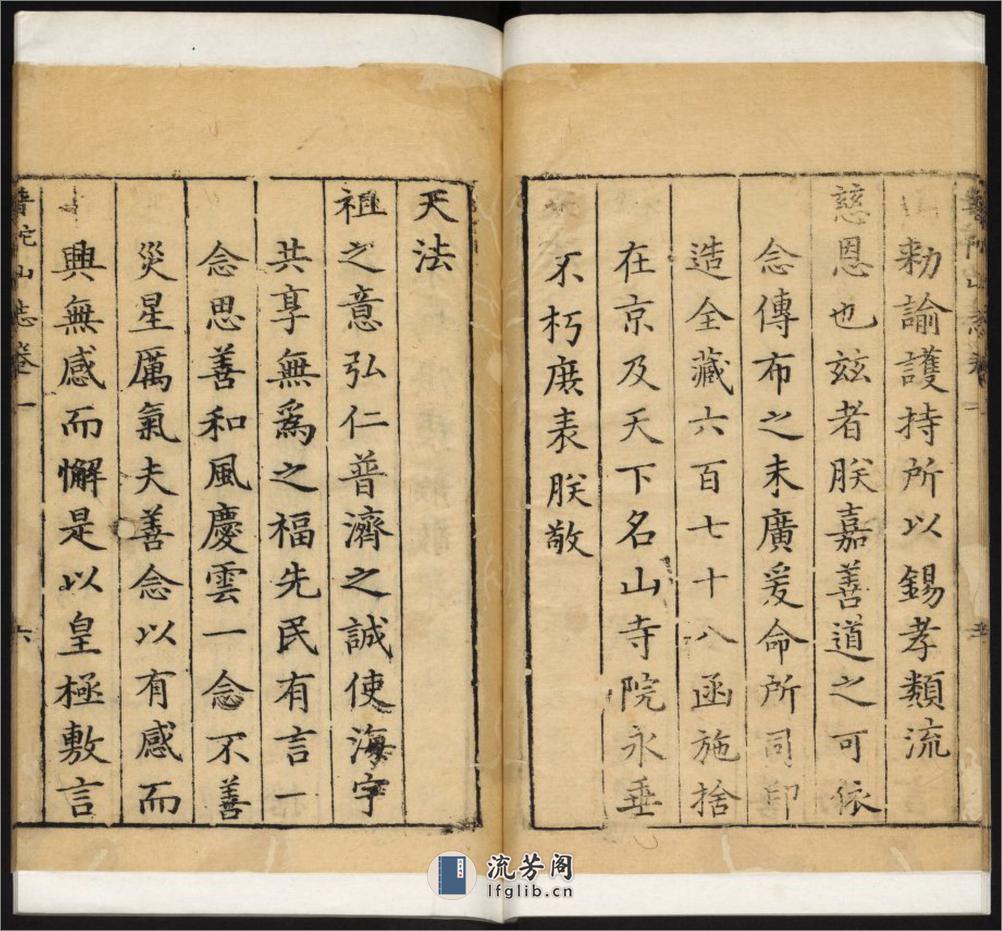 勑諭護持所以錫孝類流
慈恩也玆者朕嘉善道之可依
念傳布之未廣爰命所司印
造全藏六百七十八函施捨
在京及天下名山寺院永垂
不朽庶表朕敬
天法
祖之意弘仁普濟之誠使海宇
共享無爲之福先民有言一
念思善和風慶雲一念不善
災星厲氣夫善念以有感而
興無感而懈是以皇極敷言
普陀山志卷一
六
流芳阁
lfglib.cn